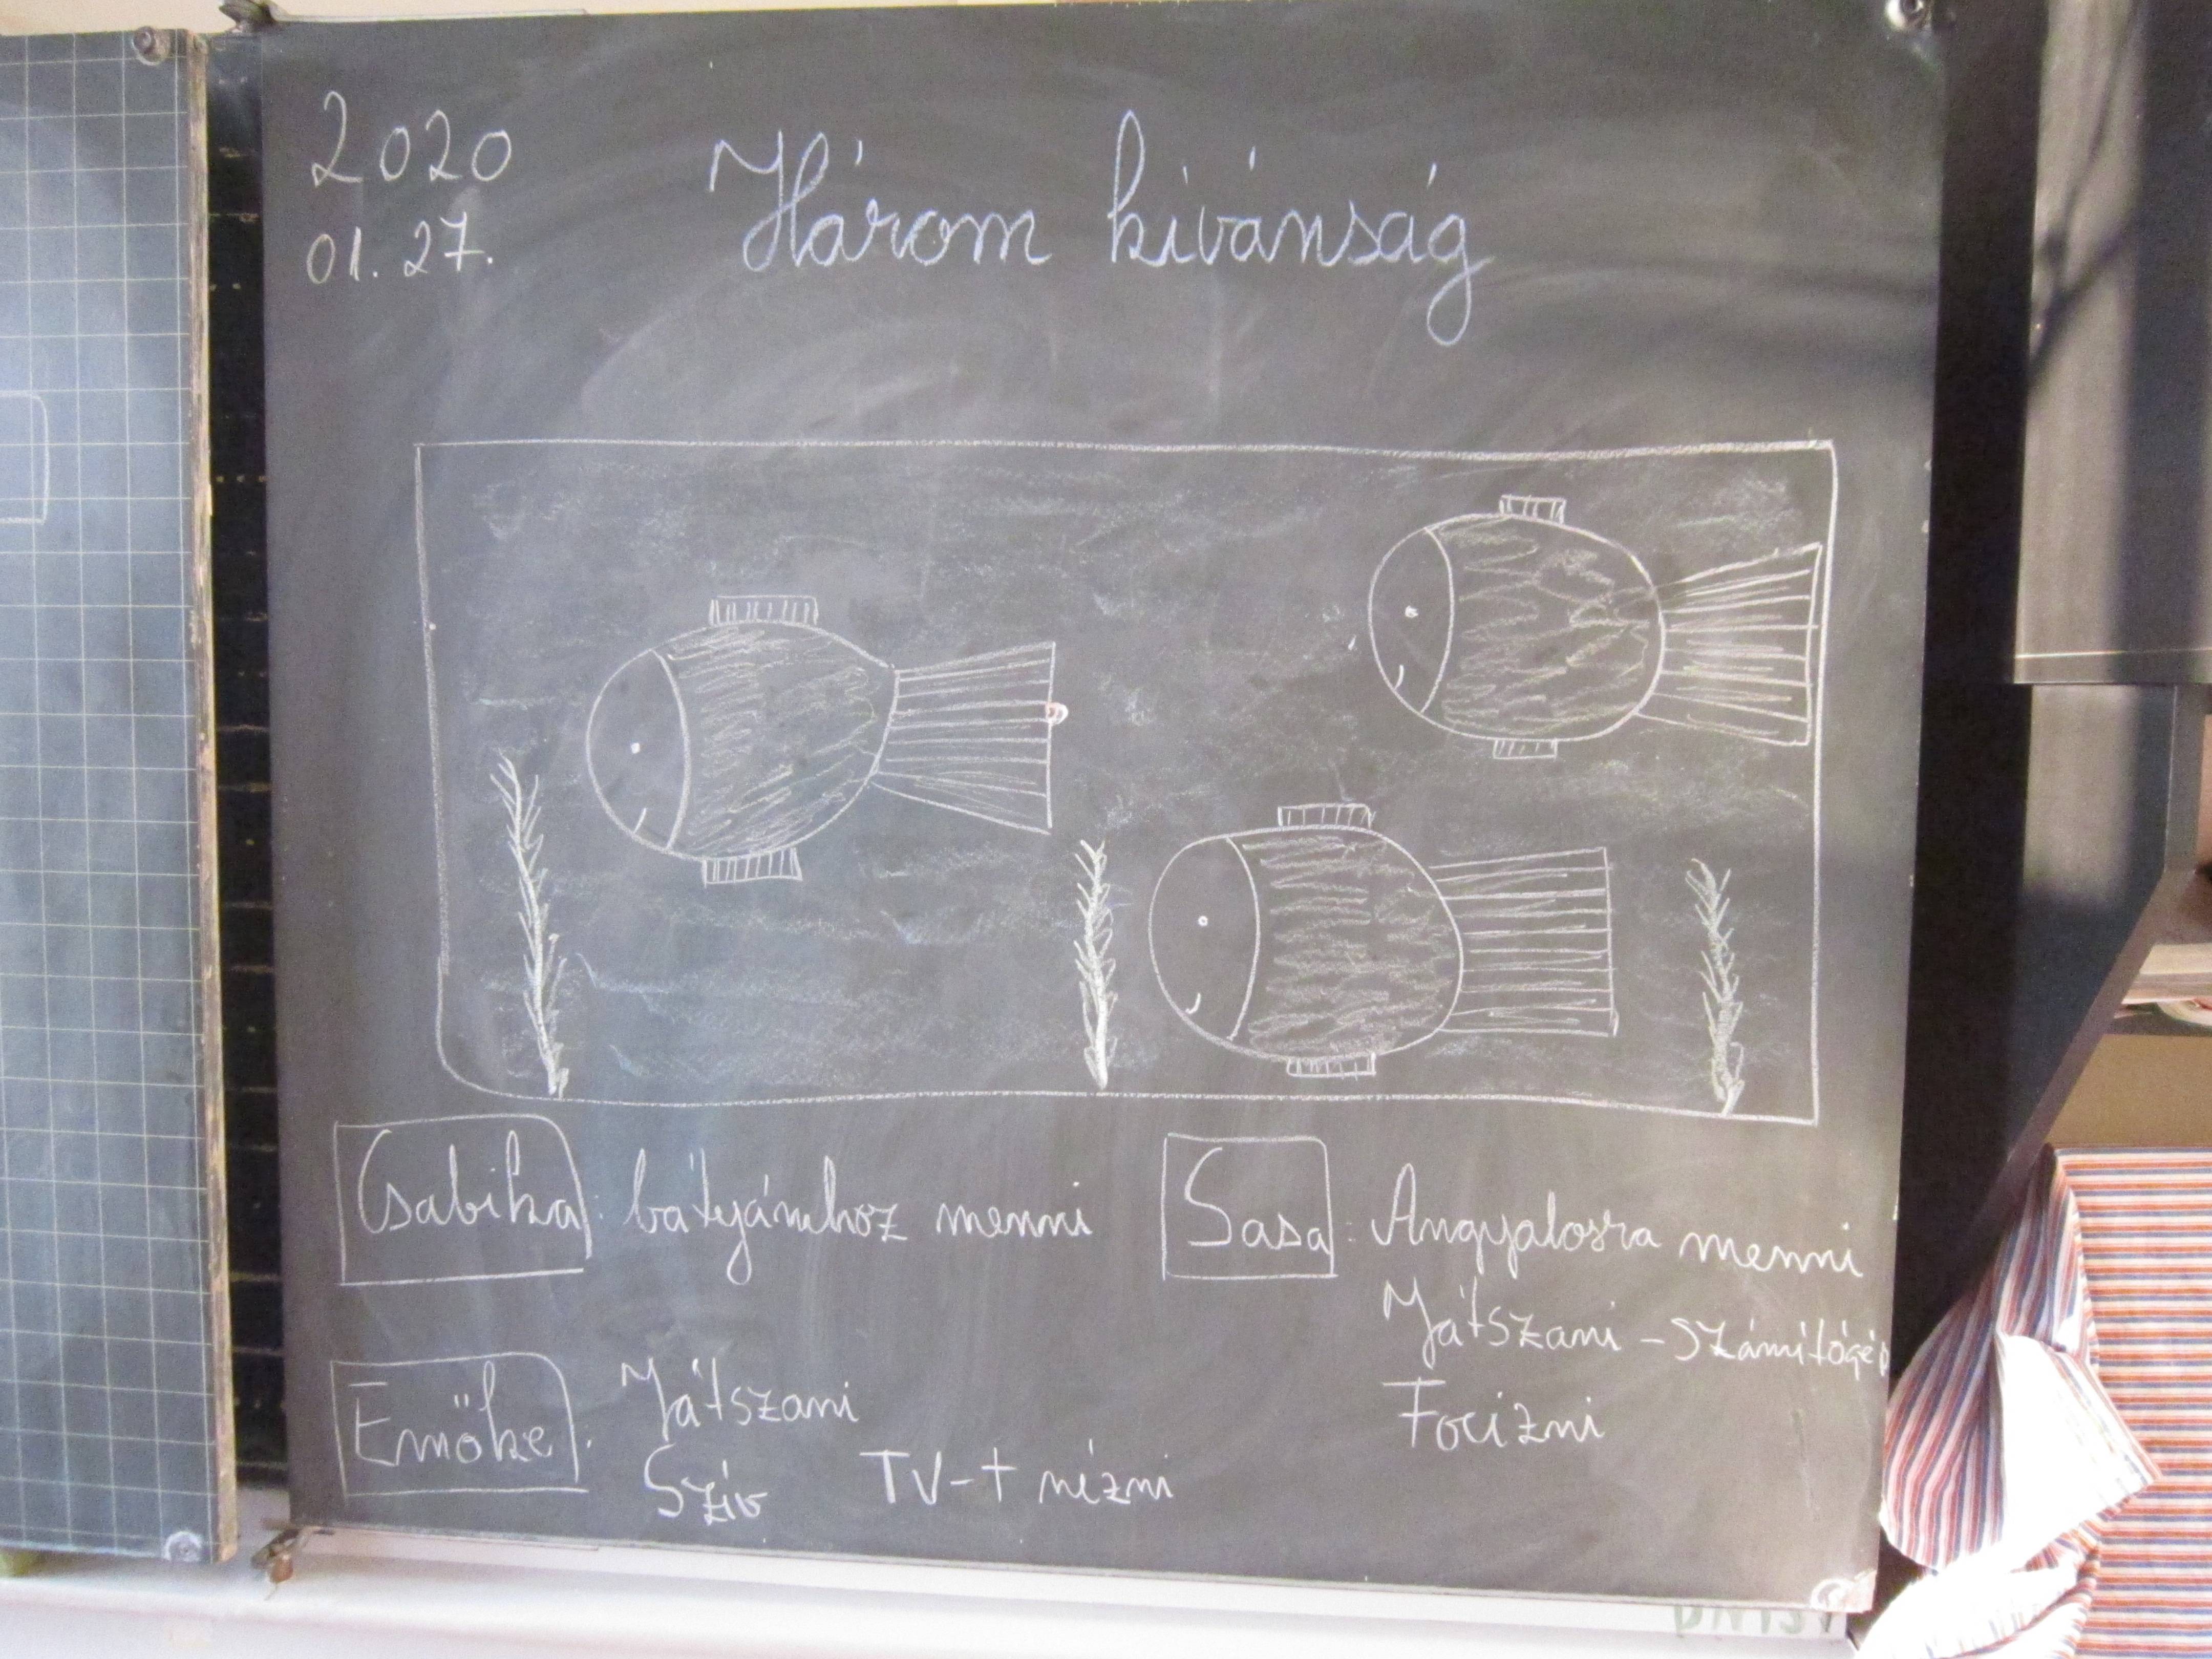 2020
01.27.
Három kívánság
Csabika: bátyámhoz menni
Sasa: Angyalosra menni
Játszani - számítógép
Focizni
Emőke: Játszani
Szív TV-t nézni